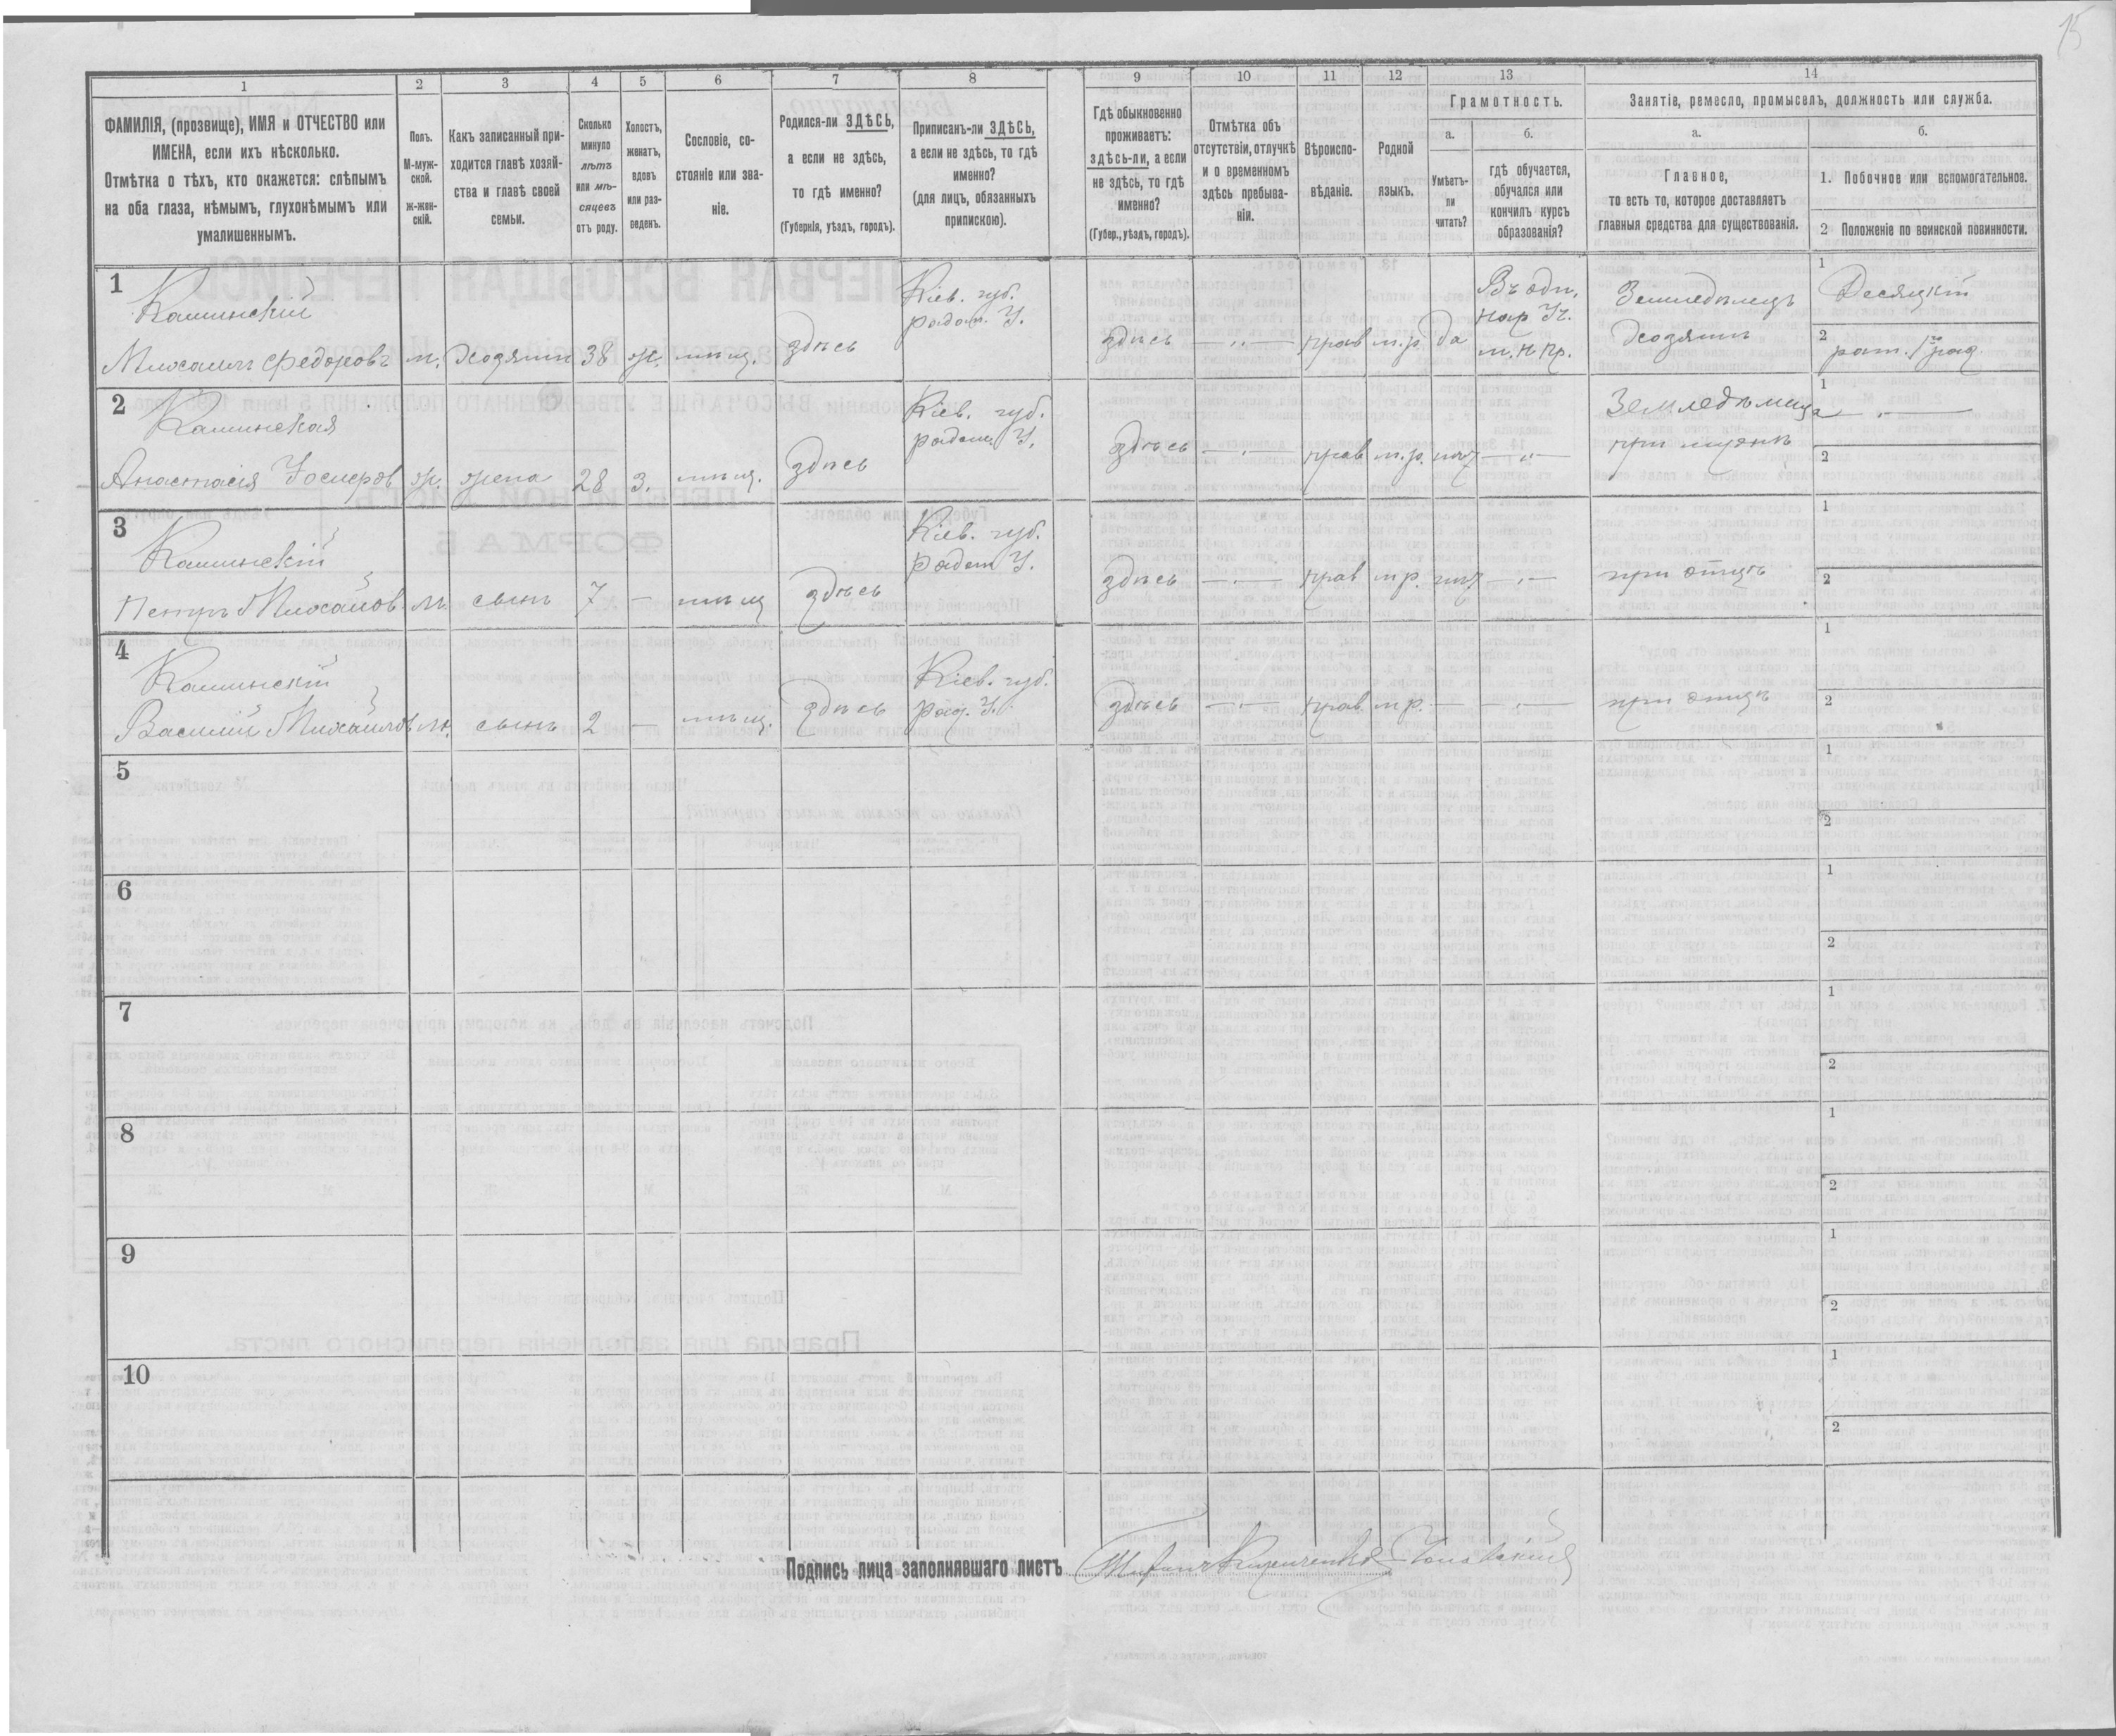 15
1 2 3 4 5 6 7 8 9 10 11 12 13 14
ФАМИЛІЯ, (прозвище), ИМЯ и ОТЧЕСТВО или
ИМЕНА, если ихъ нѣсколько.
Отмѣтка о тѣхъ, кто окажется: слѣпымъ
на оба глаза, нѣмымъ, глухонѣмымъ или
умалишеннымъ.
Полъ.
М-муж-
ской.
ж-жен-
скій.
Какъ записанный при-
ходится главѣ хозяй-
ства и главѣ своей
семьи.
Сколько
минуло
лѣтъ
или мѣ-
сяцевъ
отъ роду.
Холостъ,
женатъ,
вдовъ
или раз-
веденъ.
Сословіе, со-
стояніе или зва-
ніе.
Родился-ли ЗДѢСЬ,
а если не здѣсь,
то гдѣ именно?
(Губернія, уѣздъ, городъ).
Приписанъ-ли ЗДѢСЬ,
а если не здѣсь, то гдѣ
именно?
(для лицъ, обязанныхъ
припискою).
Гдѣ обыкновенно
проживаетъ:
здѣсь-ли, а если
не здѣсь, то гдѣ
именно?
(Губер., уѣздъ, городъ).
Отмѣтка объ
отсутствіи, отлучкѣ
и о временномъ
здѣсь пребыва-
ніи.
Вѣроиспо-
вѣданіе.
Родной
языкъ.
Грамотность.
а.
Умѣетъ-
ли
читать?
б.
гдѣ обучается,
обучался или
кончилъ курсъ
образованія?
Занятіе, ремесло, промыселъ, должность или служба.
а.
Главное,
то есть то, которое доставляетъ
главныя средства для существованія.
б.
1. Побочное или вспомогательное.
2 Положеніе по воинской повинности.
1
Кашинскій
Михаилъ Федоровъ м. Хозяинъ 38 ж. мѣщ. здѣсь
Кіев. губ.
радом. У.
здѣсь — " — прав м.р. да
Въ одн.
нар Уч.
м. н пр.
Земледѣлецъ
Хозяинъ
1 Десяцкій
2
2
Кашинская
Анастасія ж. жена 28 з. мѣщ. здѣсь
Кіев. губ.
радом У.
здѣсь — " — прав м.р. нѣт — " —
Земледѣлица
при мужѣ
1 — " —
2
3
Кашинскій
Петръ Михайлов м. сынъ 7 — мѣщ здѣсь
Кіев. губ.
радом У.
здѣсь — " — прав м р. нѣт — " —
при отцѣ
1
2
4
Кашинскій
Василій Михайлов м. сынъ 2 — мѣщ. здѣсь
Кіев. губ.
рад. У.
здѣсь — " — прав. м р. — — " —
при отцѣ
1
2
5
1
2
6
1
2
7
1
2
8
1
2
9
1
2
10
1
2
Подпись лица заполнявшаго листъ